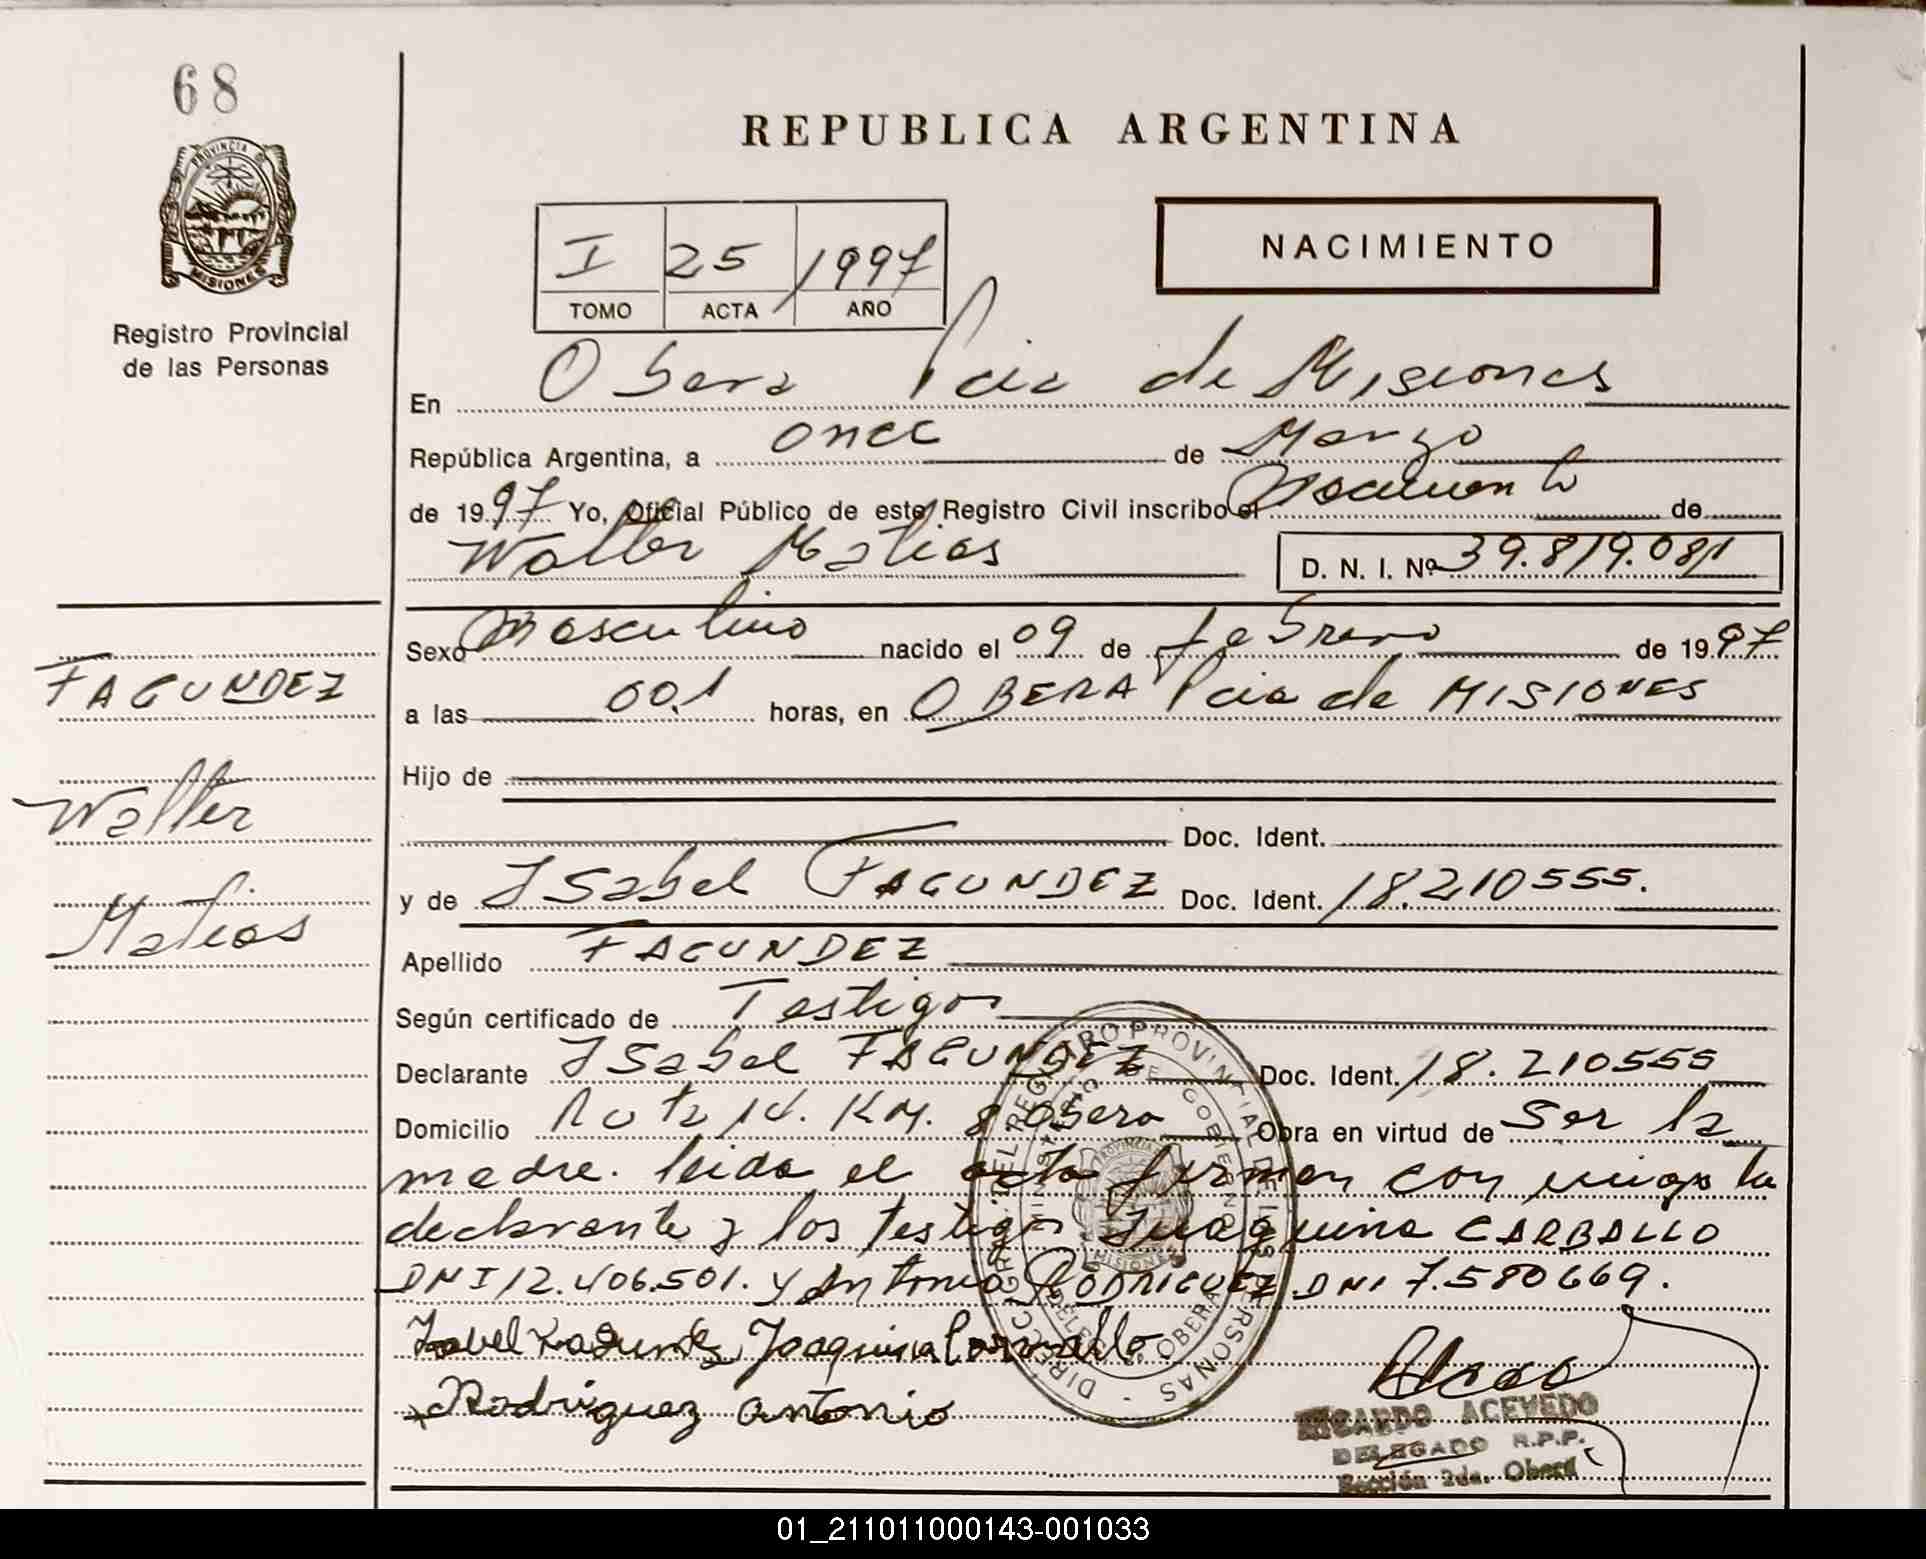 68
REPUBLICA ARGENTINA
PROVINCIA DE
MISIONES
Registro Provincial
de las Personas
I 25 / 1997
TOMO ACTA AÑO
NACIMIENTO
En Obera Pcia de Misiones
República Argentina, a once de Marzo
de 1997 Yo, Oficial Público de este Registro Civil inscribo el Nacimiento de
Walter Matias D. N. I. Nº 39.819.081
Sexo Masculino nacido el 09 de febrero de 1997
a las 00.1 horas, en OBERA Pcia de MISIONES
Hijo de
Doc. Ident.
y de Isabel FAGUNDEZ Doc. Ident. 18.210555.
Apellido FAGUNDEZ
Según certificado de Testigos
Declarante Isabel FAGUNDEZ Doc. Ident. 18.210555
Domicilio Ruta 14. KM. 8 Obera Obra en virtud de Ser la
madre. leida el acta firman con migo la
declarante y los testigos Juaquina CARBALLO
DNI 12.406.501. y Antonio RODRIGUEZ DNI 7.580669.
Joaquina Carvallo
Rodriguez antonio
FAGUNDEZ
Walter
Matias
DIRECC. GRAL. DEL REGISTRO PROVINCIAL DE LAS PERSONAS
MINISTERIO DE GOBIERNO
PROVINCIA
MISIONES
OBERA
RICARDO ACEVEDO
DELEGADO R.P.P.
Sección 2da. Oberá
01_211011000143-001033